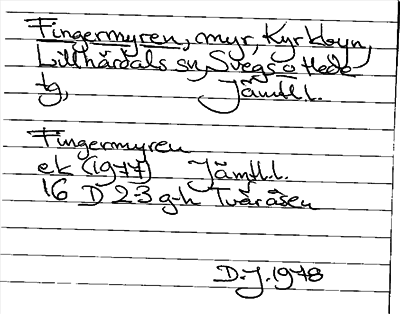 Fingermyren, myr, Kyrkbyn,
Lillhärdals sn, Svegs o Hede
tg, Jämtl.l.
Fingermyren
ek (1977) Jämtl.l.
16 D 2-3 g-h Tvåråsen
D.J. 1978